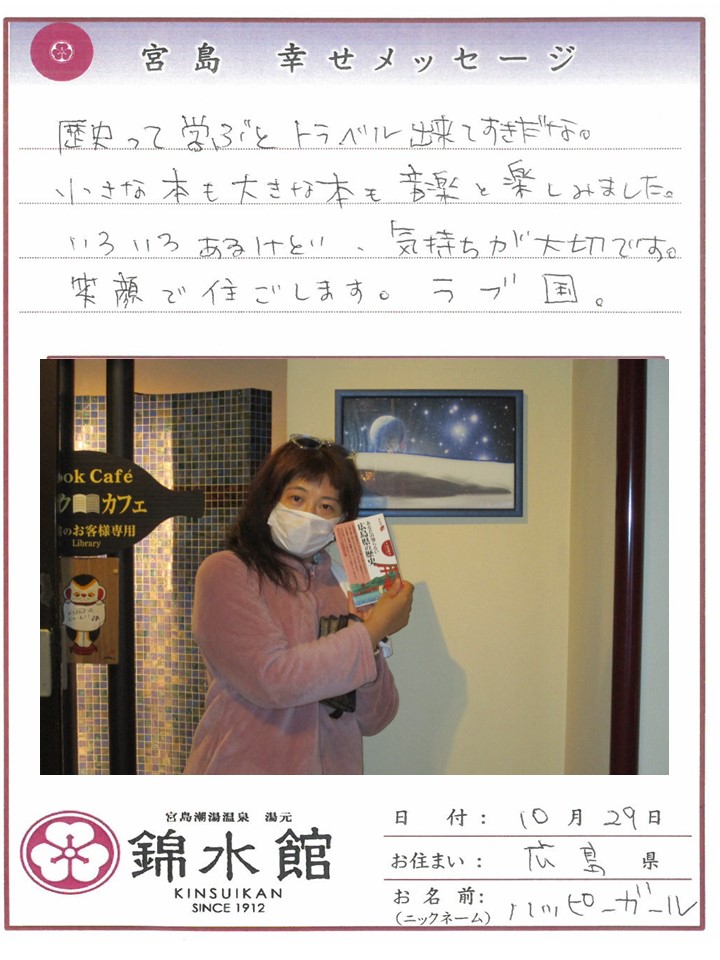 宮島 幸せメッセージ
歴史って学ぶとトラベル出来てすきだな。
小さな本も大きな本も音楽と楽しみました。
いろいろあるけどい、気持ちが大切です。
笑顔で住ごします。ラブ国。
ook Café
ク カフェ
のお客様専用
Library
広島県の歴史
宮島潮湯温泉 湯元
錦水館
KINSUIKAN
SINCE 1912
日 付: 10月29日
お住まい: 広島県
お名前: ハッピーガール
(ニックネーム)